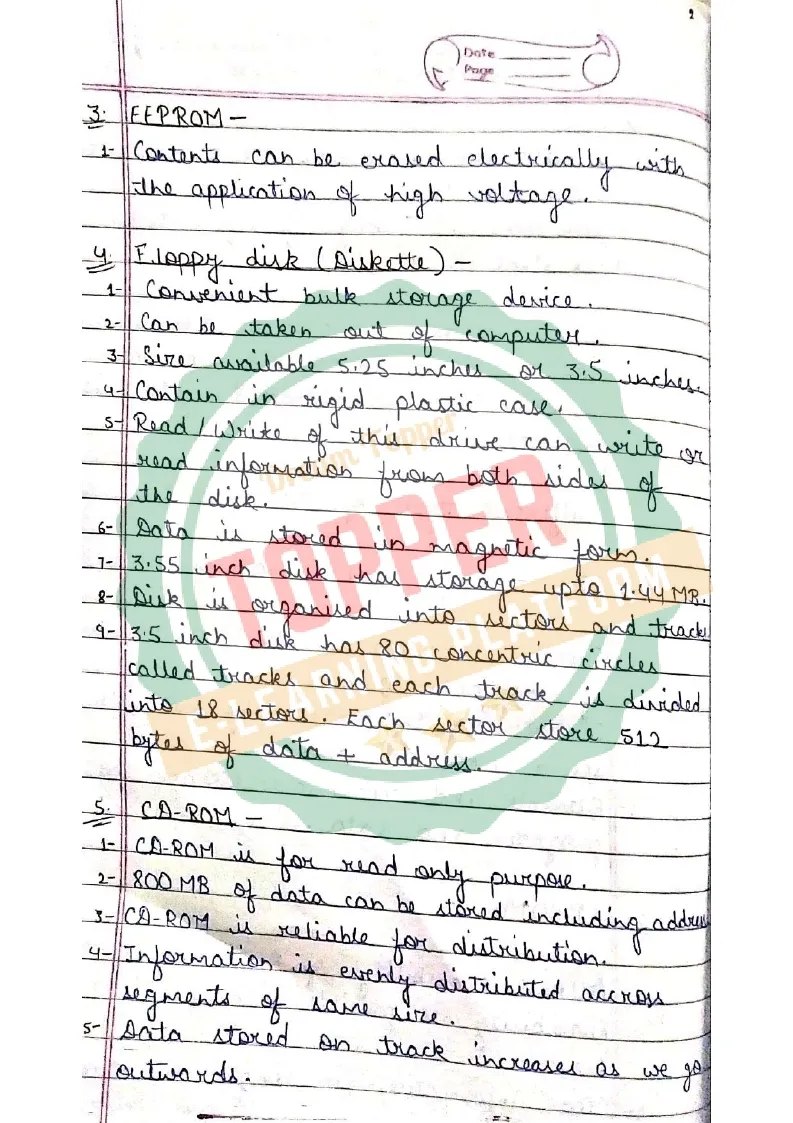 2
Date
Page
3. EEPROM -
1- Contents can be erased electrically with
the application of high voltage.
4. Floppy disk (Diskette) -
1- Convenient bulk storage device.
2- Can be taken out of computer.
3- Size available 5.25 inches or 3.5 inches.
4- Contain in rigid plastic case.
5- Read/Write of this drive can write or
read information from both sides of
the disk.
6- Data is stored in magnetic form.
7- 3.55 inch disk has storage upto 1.44 MB.
8- Disk is organised into sectors and track
9- 3.5 inch disk has 80 concentric circles
called tracks and each track is divided
into 18 sectors. Each sector store 512
bytes of data + address.
5. CD-ROM -
1- CD-ROM is for read only purpose.
2- 800 MB of data can be stored including address
3- CD-ROM is reliable for distribution.
4- Information is evenly distributed accross
segments of same size.
5- Data stored on track increases as we go
outwards.
Dream Topper
TOPPER
E-LEARNING PLATFORM